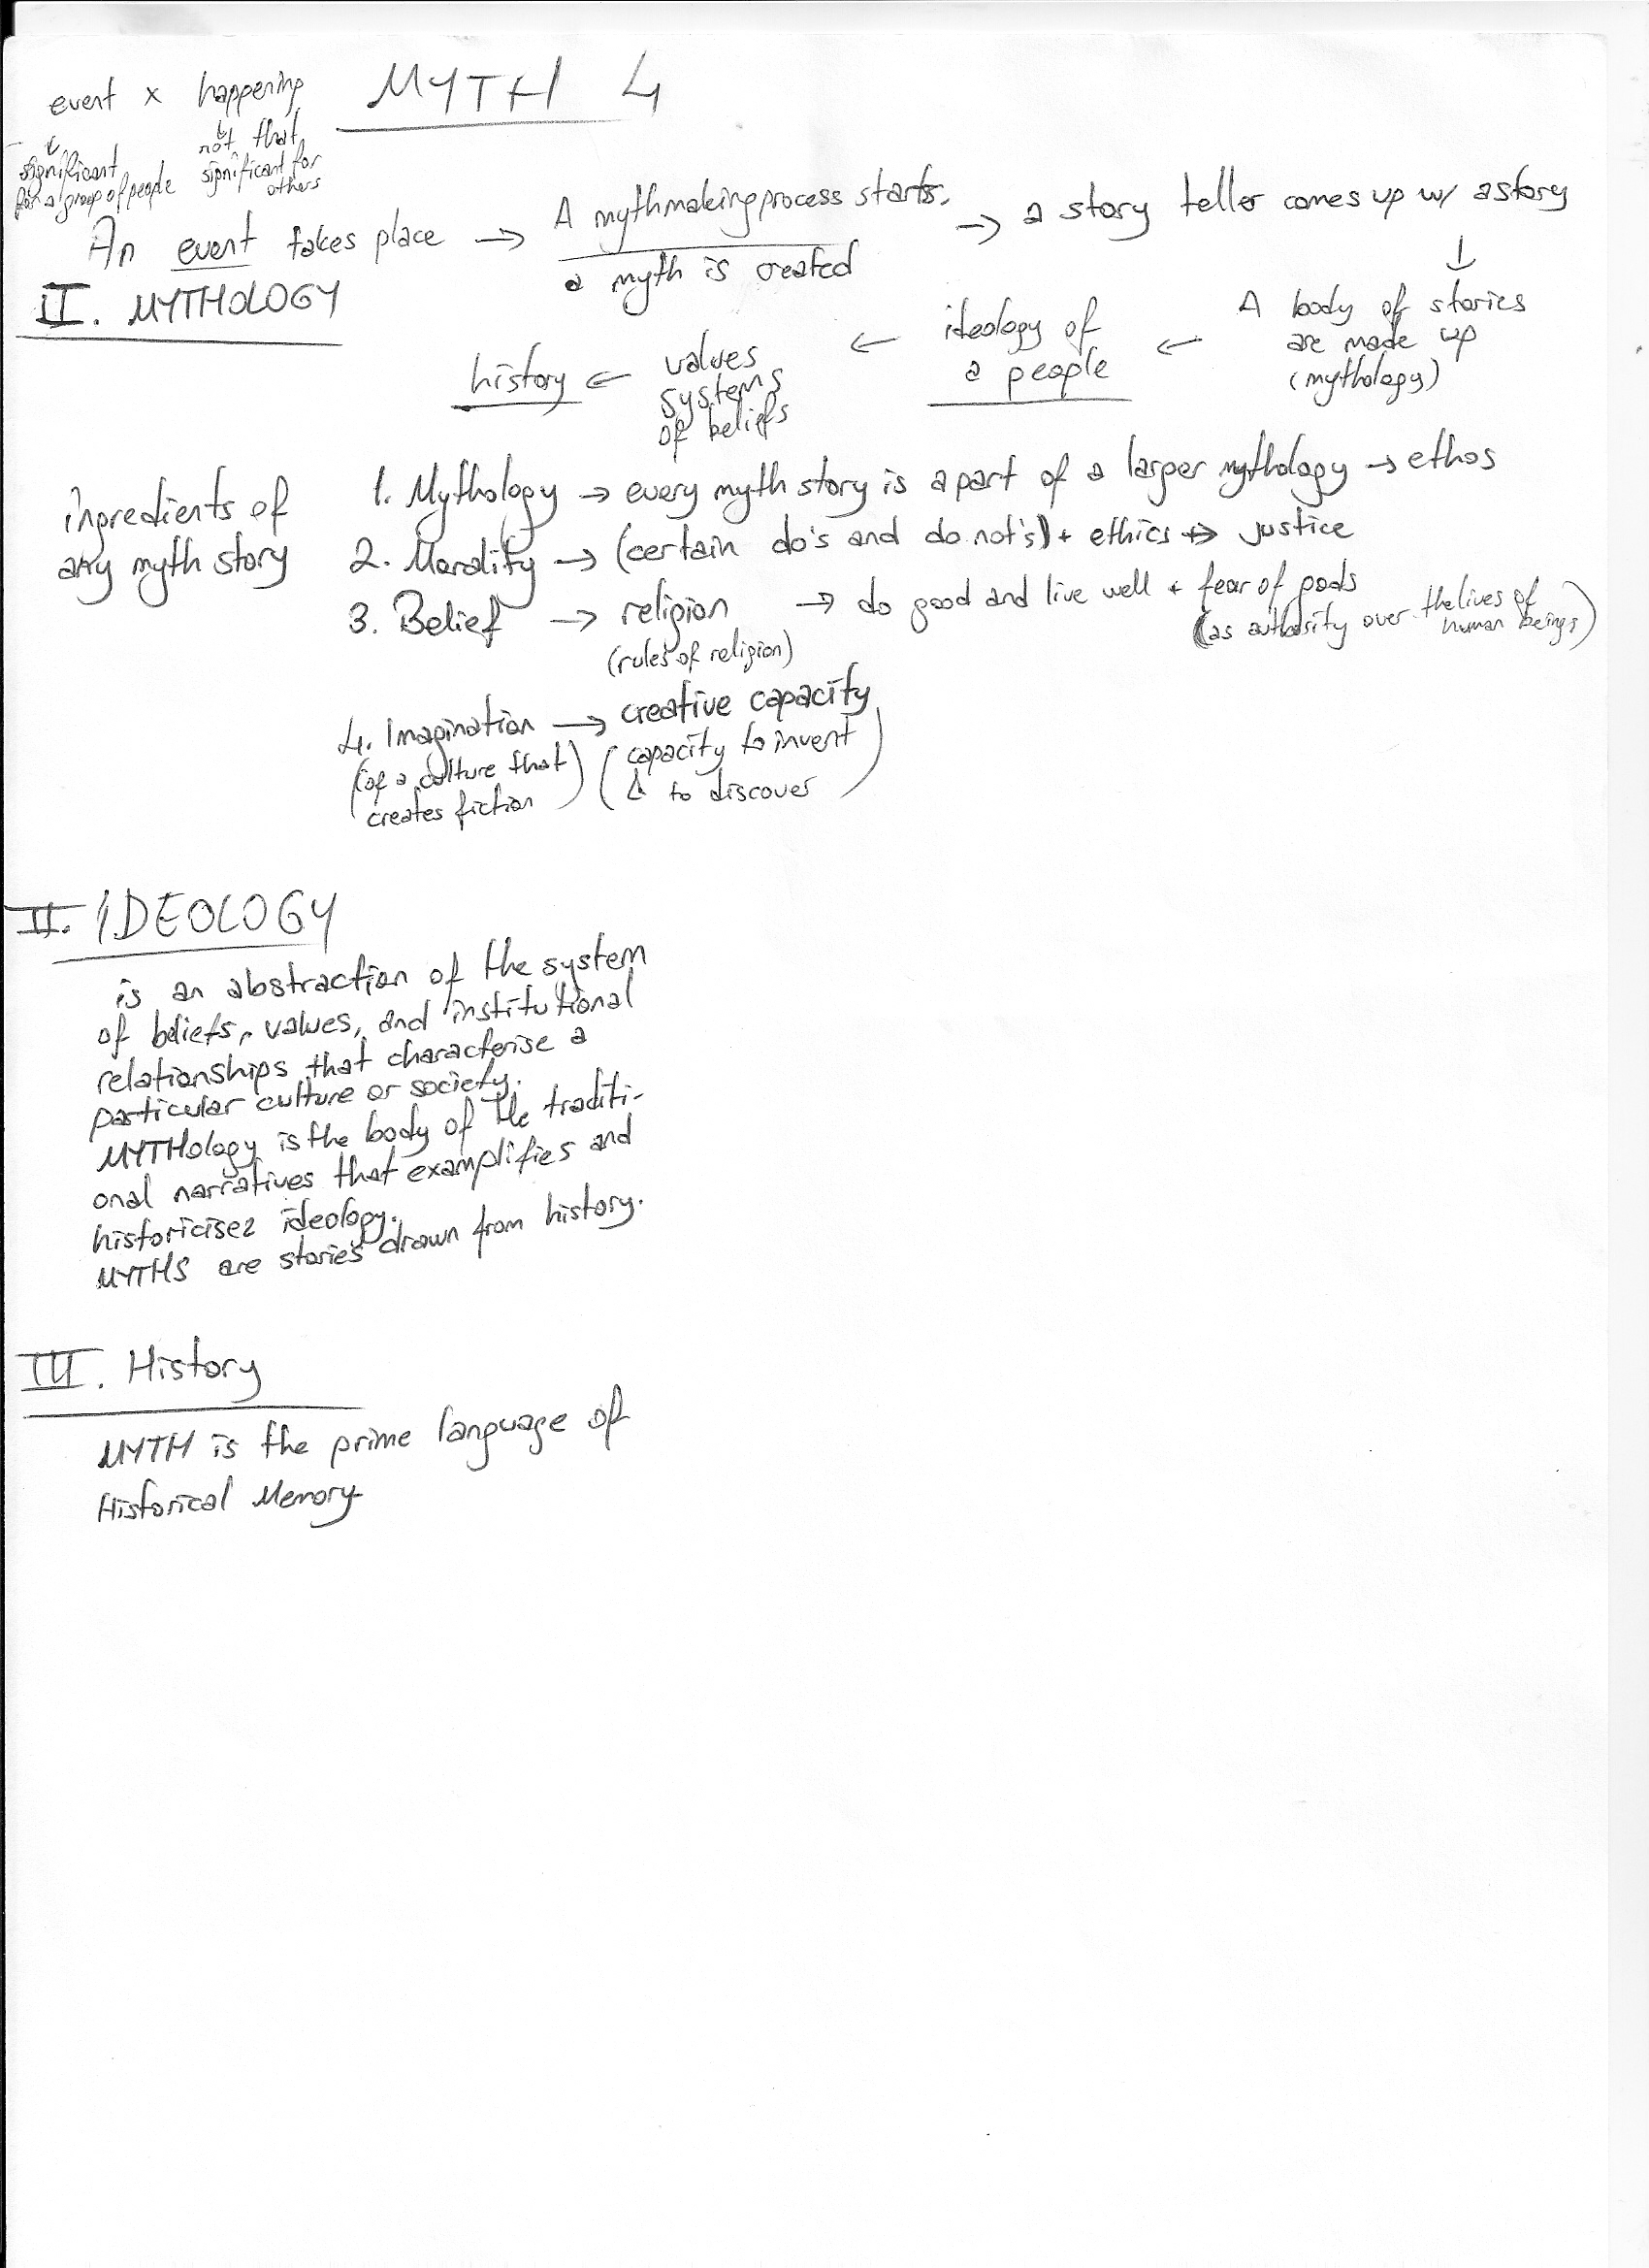 MYTH 4
event x happening
↓ ↓
significant not that
for a group of people significant for
others
An event takes place → A mythmaking process starts. → a story teller comes up w/ a story
a myth is created ↓
II. MYTHOLOGY
A body of stories
are made up
(mythology)
← ideology of
a people
← values
systems
of beliefs
history ←
ingredients of
any myth story
1. Mythology → every myth story is a part of a larger mythology → ethos
2. Morality → (certain do's and do not's) + ethics → justice
3. Belief → religion → do good and live well + fear of gods
(rules of religion) (as authority over the lives of
human beings)
4. Imagination → creative capacity
(of a culture that (capacity to invent
creates fiction) & to discover)
II. IDEOLOGY
is an abstraction of the system
of beliefs, values, and institutional
relationships that characterise a
particular culture or society.
MYTHology is the body of the traditi-
onal narratives that examplifies and
historicises ideology.
MYTHS are stories drawn from history.
III. History
MYTH is the prime language of
Historical Memory